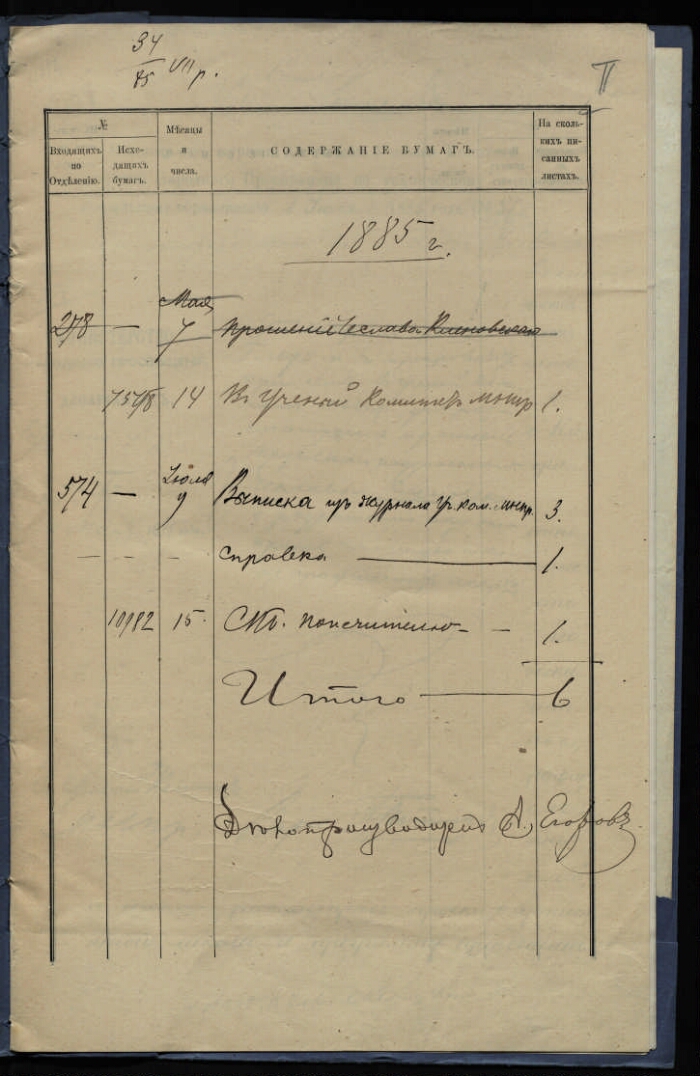 34
85 VII р.
II
№
Входящихъ по Отдѣленію.
Исходящихъ бумагъ.
Мѣсяцы и числа.
СОДЕРЖАНІЕ БУМАГЪ.
На сколькихъ писанныхъ листахъ.
1885 г.
Мая
278 — 7 Прошеніе Чеслава
14 Въ Ученый Комитетъ мнпр 1.
Іюля
574 — 9 Выписка изъ журнала Уч. ком. мнпр. 3.
— — — Справка — 1.
10982 15. СПб. попечителю — — 1.
Итого — 6
Дѣлопроизводитель А. Егоровъ